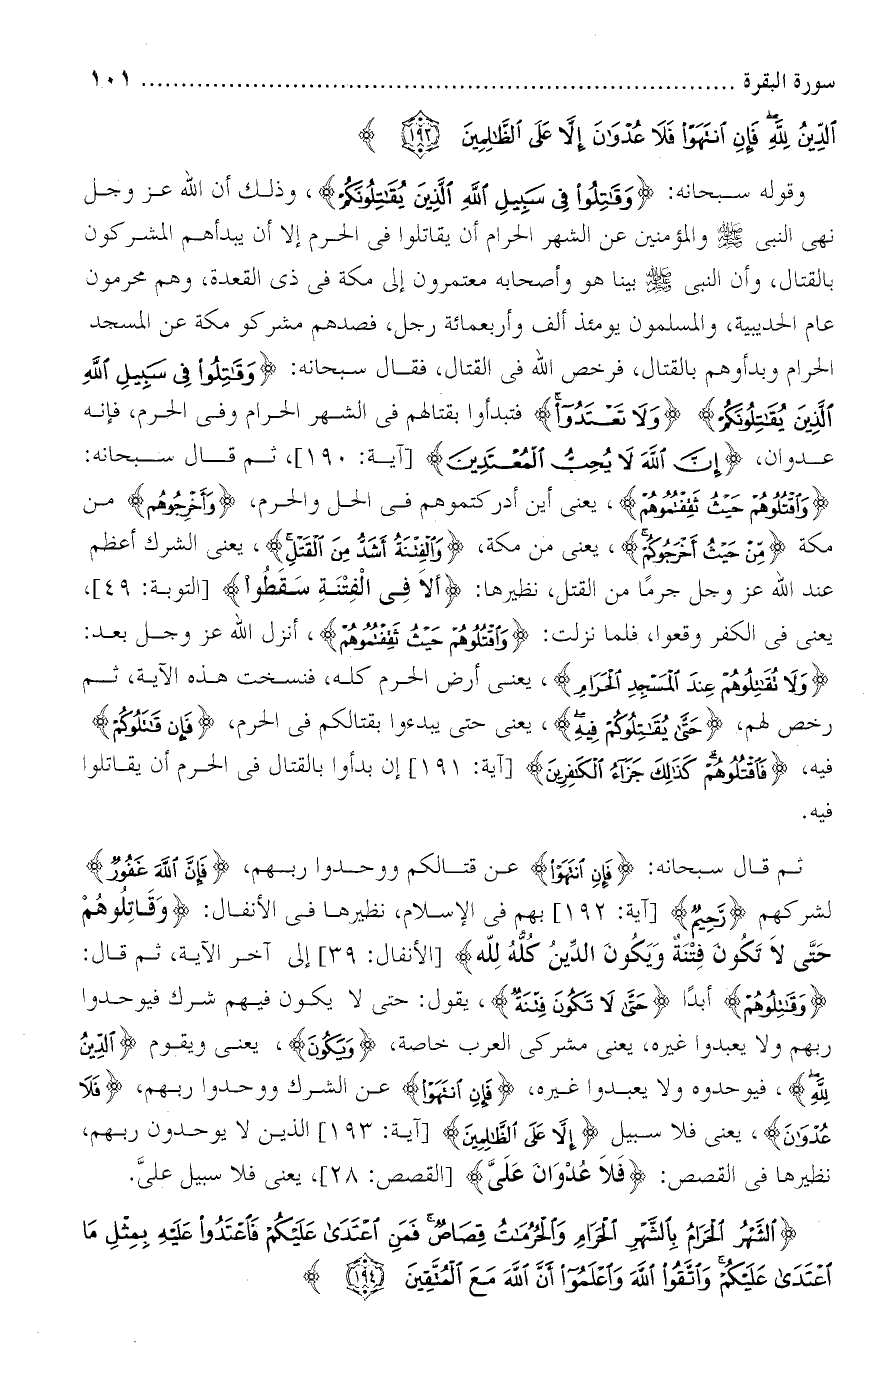 سورة البقرة ............................................................ ١٠١
ٱلدِّينُ لِلَّهِ فَإِنِ ٱنتَهَوۡاْ فَلَا عُدۡوَٰنَ إِلَّا عَلَى ٱلظَّٰلِمِينَ ﴿١٩٣﴾ ﴾
وقوله سبحانه: ﴿وَقَٰتِلُواْ فِى سَبِيلِ ٱللَّهِ ٱلَّذِينَ يُقَٰتِلُونَكُمۡ﴾، وذلك أن الله عز وجل
نهى النبى ﷺ والمؤمنين عن الشهر الحرام أن يقاتلوا فى الحرم إلا أن يبدأهم المشركون
بالقتال، وأن النبى ﷺ بينا هو وأصحابه معتمرون إلى مكة فى ذى القعدة، وهم محرمون
عام الحديبية، والمسلمون يومئذ ألف وأربعمائة رجل، فصدهم مشركو مكة عن المسجد
الحرام وبدأوهم بالقتال، فرخص الله فى القتال، فقال سبحانه: ﴿وَقَٰتِلُواْ فِى سَبِيلِ ٱللَّهِ
ٱلَّذِينَ يُقَٰتِلُونَكُمۡ﴾ ﴿وَلَا تَعۡتَدُوٓاْۚ﴾ فتبدأوا بقتالهم فى الشهر الحرام وفى الحرم، فإنه
عدوان، ﴿إِنَّ ٱللَّهَ لَا يُحِبُّ ٱلۡمُعۡتَدِينَ﴾ [آية: ١٩٠]، ثم قال سبحانه:
﴿وَٱقۡتُلُوهُمۡ حَيۡثُ ثَقِفۡتُمُوهُمۡ﴾، يعنى أين أدركتموهم فى الحل والحرم، ﴿وَأَخۡرِجُوهُم﴾ من
مكة ﴿مِّنۡ حَيۡثُ أَخۡرَجُوكُمۡۚ﴾، يعنى من مكة، ﴿وَٱلۡفِتۡنَةُ أَشَدُّ مِنَ ٱلۡقَتۡلِۚ﴾، يعنى الشرك أعظم
عند الله عز وجل جرمًا من القتل، نظيرها: ﴿أَلاَ فِى الْفِتْنَةِ سَقَطُواْ﴾ [التوبة: ٤٩]،
يعنى فى الكفر وقعوا، فلما نزلت: ﴿وَٱقۡتُلُوهُمۡ حَيۡثُ ثَقِفۡتُمُوهُمۡ﴾، أنزل الله عز وجل بعد:
﴿وَلَا تُقَٰتِلُوهُمۡ عِندَ ٱلۡمَسۡجِدِ ٱلۡحَرَامِ﴾، يعنى أرض الحرم كله، فنسخت هذه الآية، ثم
رخص لهم، ﴿حَتَّىٰ يُقَٰتِلُوكُمۡ فِيهِۖ﴾، يعنى حتى يبدءوا بقتالكم فى الحرم، ﴿فَإِن قَٰتَلُوكُمۡ﴾
فيه، ﴿فَٱقۡتُلُوهُمۡۗ كَذَٰلِكَ جَزَآءُ ٱلۡكَٰفِرِينَ﴾ [آية: ١٩١] إن بدأوا بالقتال فى الحرم أن يقاتلوا
فيه.
ثم قال سبحانه: ﴿فَإِنِ ٱنتَهَوۡاْ﴾ عن قتالكم ووحدوا ربهم، ﴿فَإِنَّ ٱللَّهَ غَفُورٌ﴾
لشركهم ﴿رَّحِيمٌ﴾ [آية: ١٩٢] بهم فى الإسلام، نظيرها فى الأنفال: ﴿وَقَاتِلُوهُمْ
حَتَّى لاَ تَكُونَ فِتْنَةٌ وَيَكُونَ الدِّينُ كُلُّهُ لِلّه﴾ [الأنفال: ٣٩] إلى آخر الآية، ثم قال:
﴿وَقَٰتِلُوهُمۡ﴾ أبدًا ﴿حَتَّىٰ لَا تَكُونَ فِتۡنَةٌ﴾، يقول: حتى لا يكون فيهم شرك فيوحدوا
ربهم ولا يعبدوا غيره، يعنى مشركى العرب خاصة، ﴿وَيَكُونَ﴾، يعنى ويقوم ﴿ٱلدِّينُ
لِلَّهِۖ﴾، فيوحدوه ولا يعبدوا غيره، ﴿فَإِنِ ٱنتَهَوۡاْ﴾ عن الشرك ووحدوا ربهم، ﴿فَلَا
عُدۡوَٰنَ﴾، يعنى فلا سبيل ﴿إِلَّا عَلَى ٱلظَّٰلِمِينَ﴾ [آية: ١٩٣] الذين لا يوحدون ربهم،
نظيرها فى القصص: ﴿فَلاَ عُدْوَانَ عَلَىَّ﴾ [القصص: ٢٨]، يعنى فلا سبيل علىَّ.
﴿ٱلشَّهۡرُ ٱلۡحَرَامُ بِٱلشَّهۡرِ ٱلۡحَرَامِ وَٱلۡحُرُمَٰتُ قِصَاصٌۚ فَمَنِ ٱعۡتَدَىٰ عَلَيۡكُمۡ فَٱعۡتَدُواْ عَلَيۡهِ بِمِثۡلِ مَا
ٱعۡتَدَىٰ عَلَيۡكُمۡۚ وَٱتَّقُواْ ٱللَّهَ وَٱعۡلَمُوٓاْ أَنَّ ٱللَّهَ مَعَ ٱلۡمُتَّقِينَ ﴿١٩٤﴾ ﴾